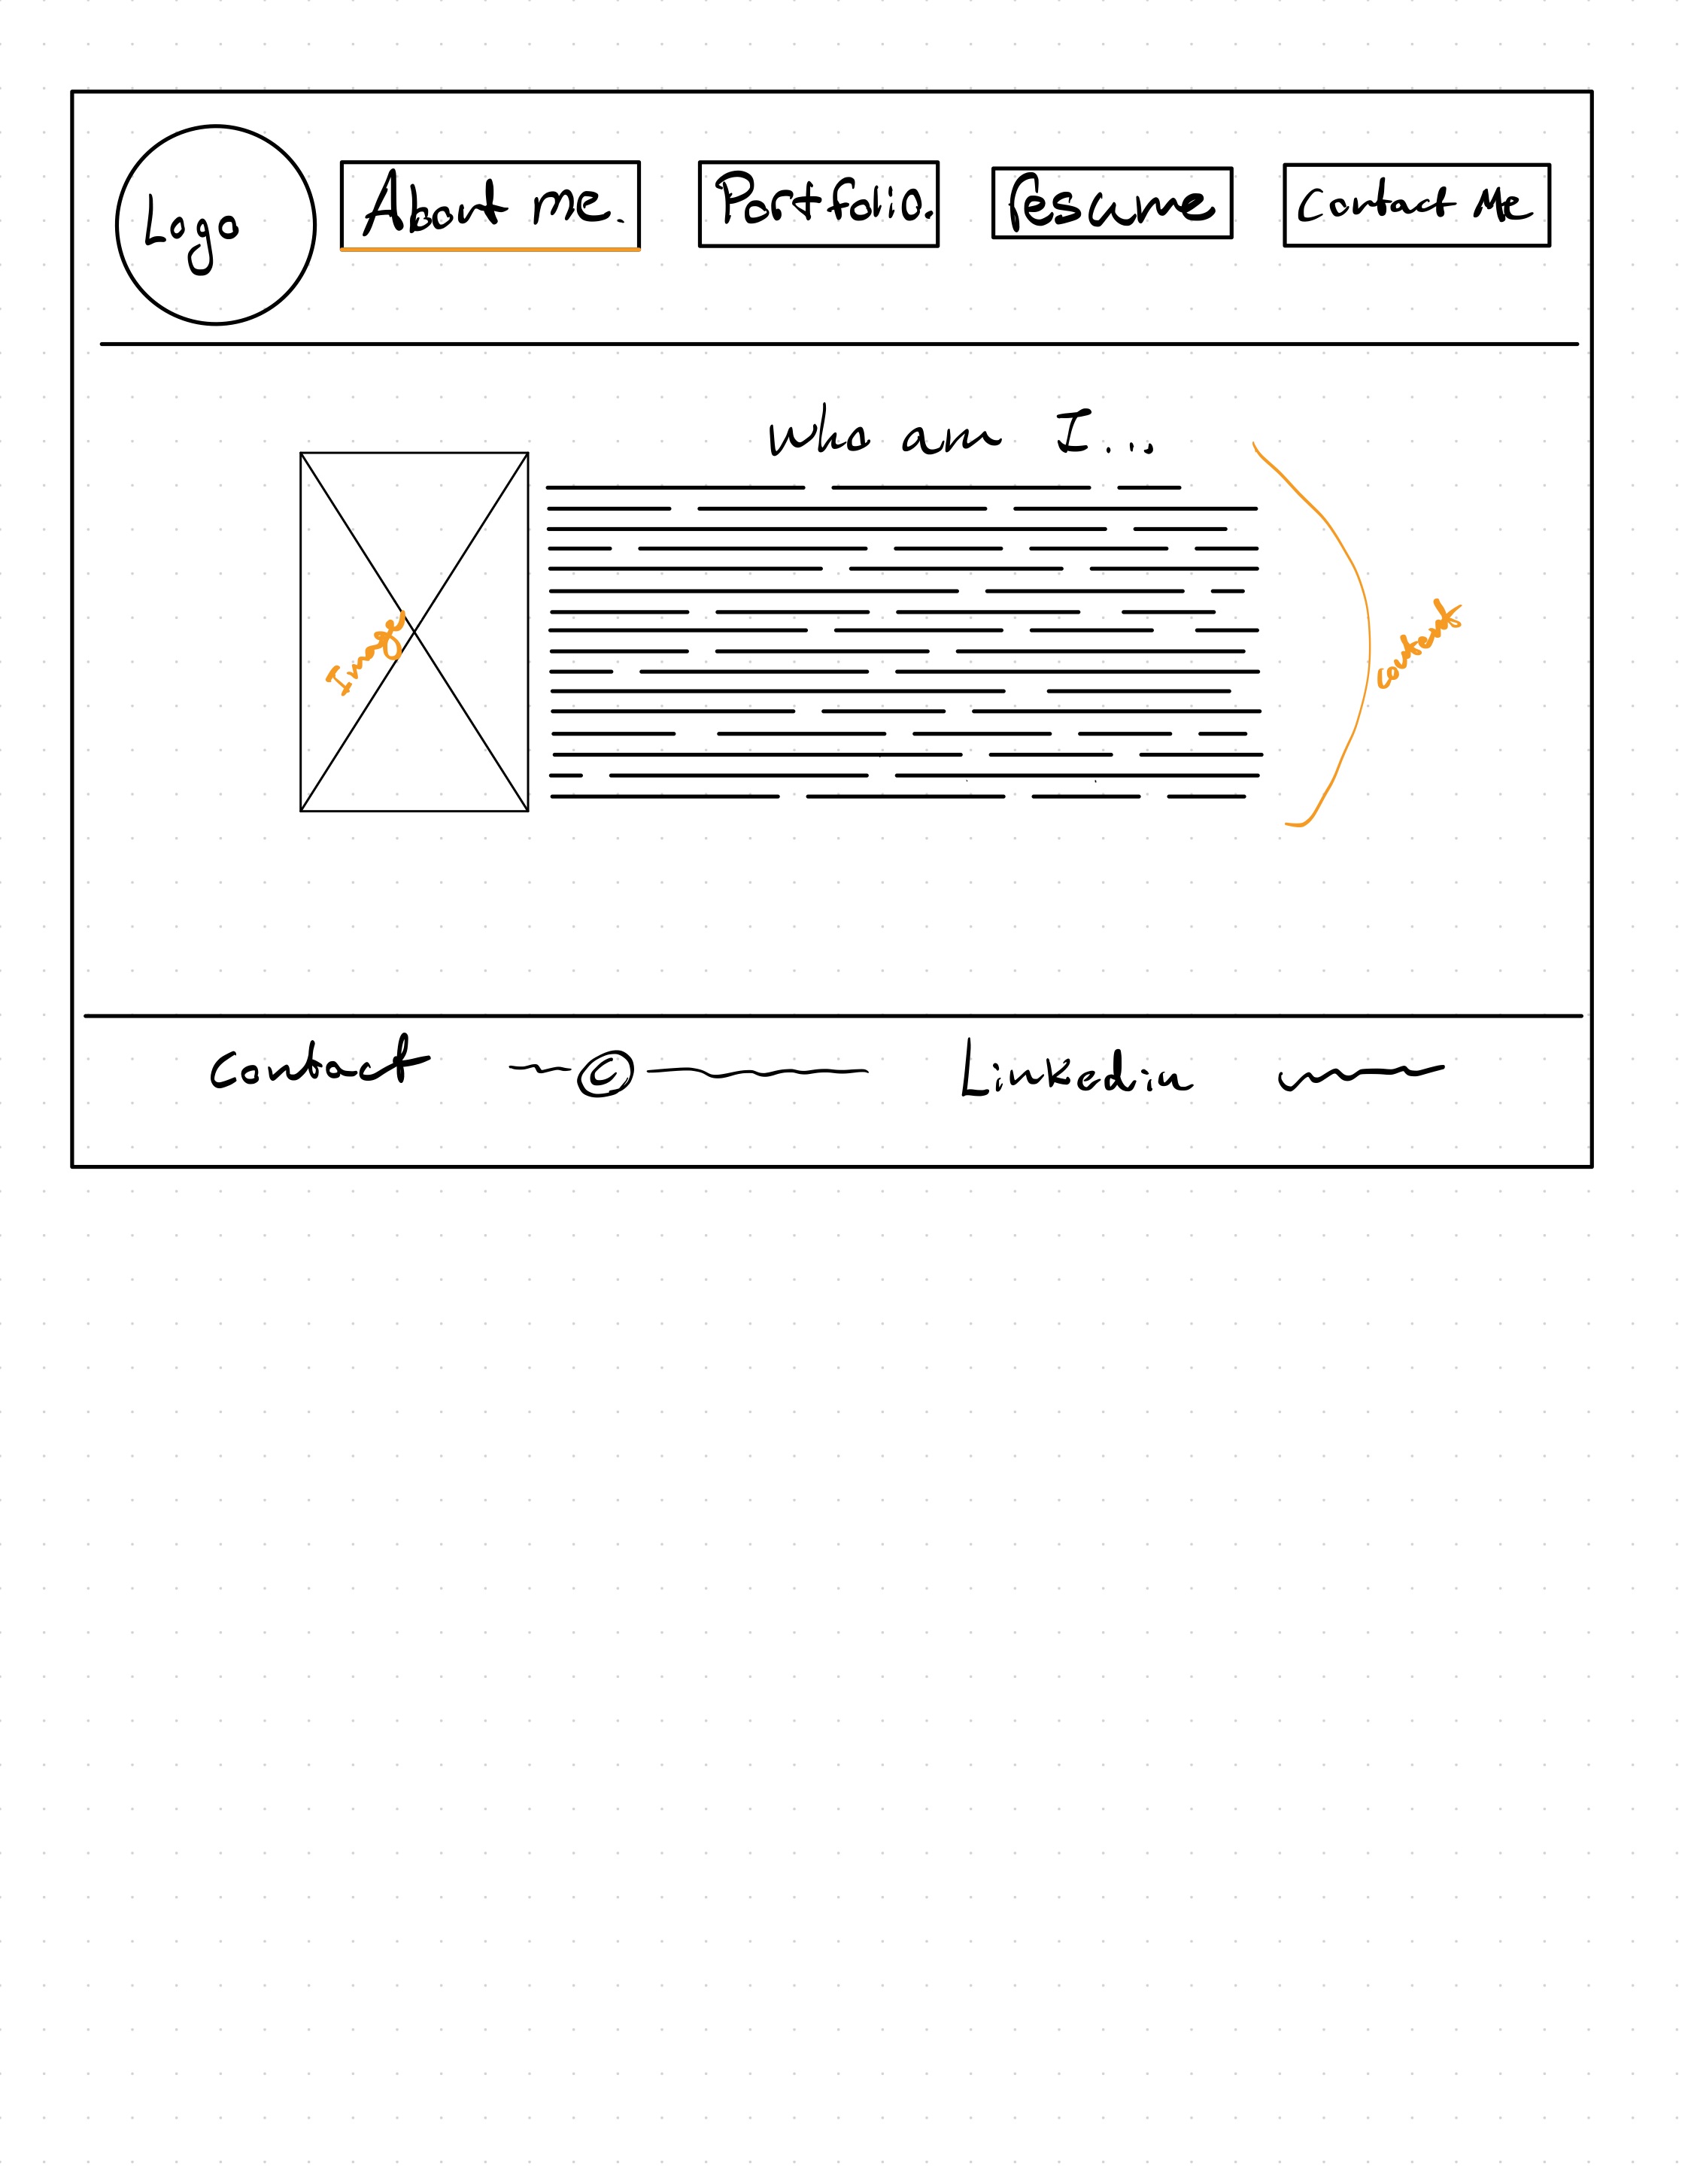 Logo
About me.
Portfolio.
Resume
Contact Me
Who am I...
Image
Content
Contact
©
Linkedin